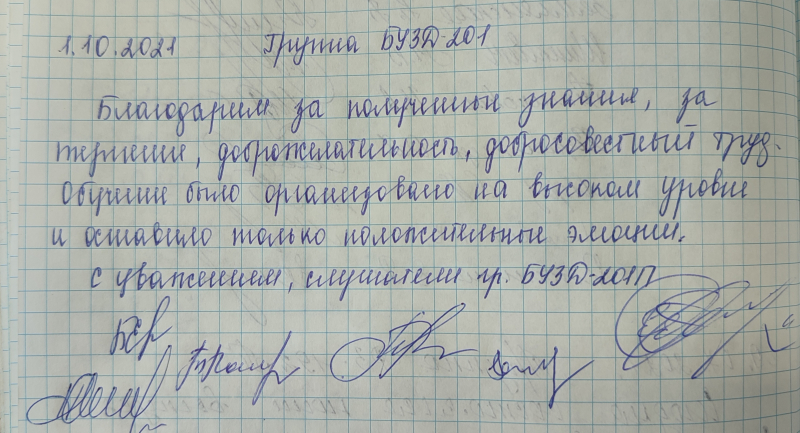 1.10.2021 Группа БУЗД-201
Благодарим за полученные знания, за
терпение, доброжелательность, добросовестный труд.
Обучение было организовано на высоком уровне
и оставило только положительные эмоции.
С уважением, слушатели гр. БУЗД-201П